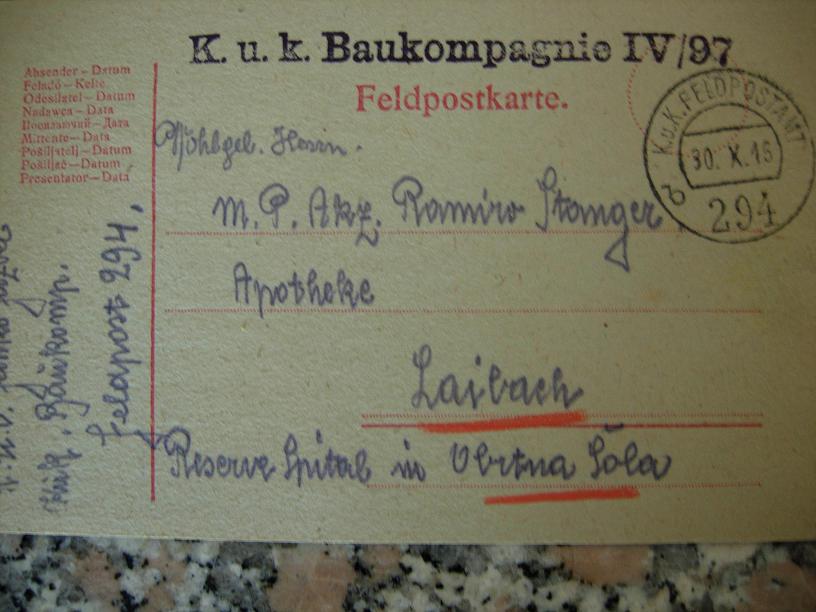 K. u. k. Baukompagnie IV/97
Feldpostkarte.
K.u.K. FELDPOSTAMT
30. X. 15
b
294
Absender – Datum
Feladó – Kelte
Odesílatel – Datum
Nadawca – Data
Посилаючий – Дата
Mittente – Data
Pošiljatelj – Datum
Pošiljač – Datum
Presentator – Data
Wohlgeb. Herrn.
M. P. Akz. Ramiro Stanger
Apotheke
Laibach
Reserve Spital in Obrtna Šola
Feldpost 294.
K.u.k. Baukomp.